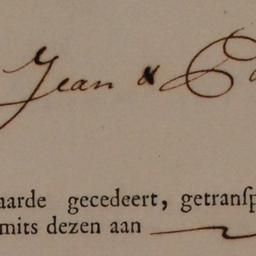 Jean &
aarde gecedeert, getransp
mits dezen aan